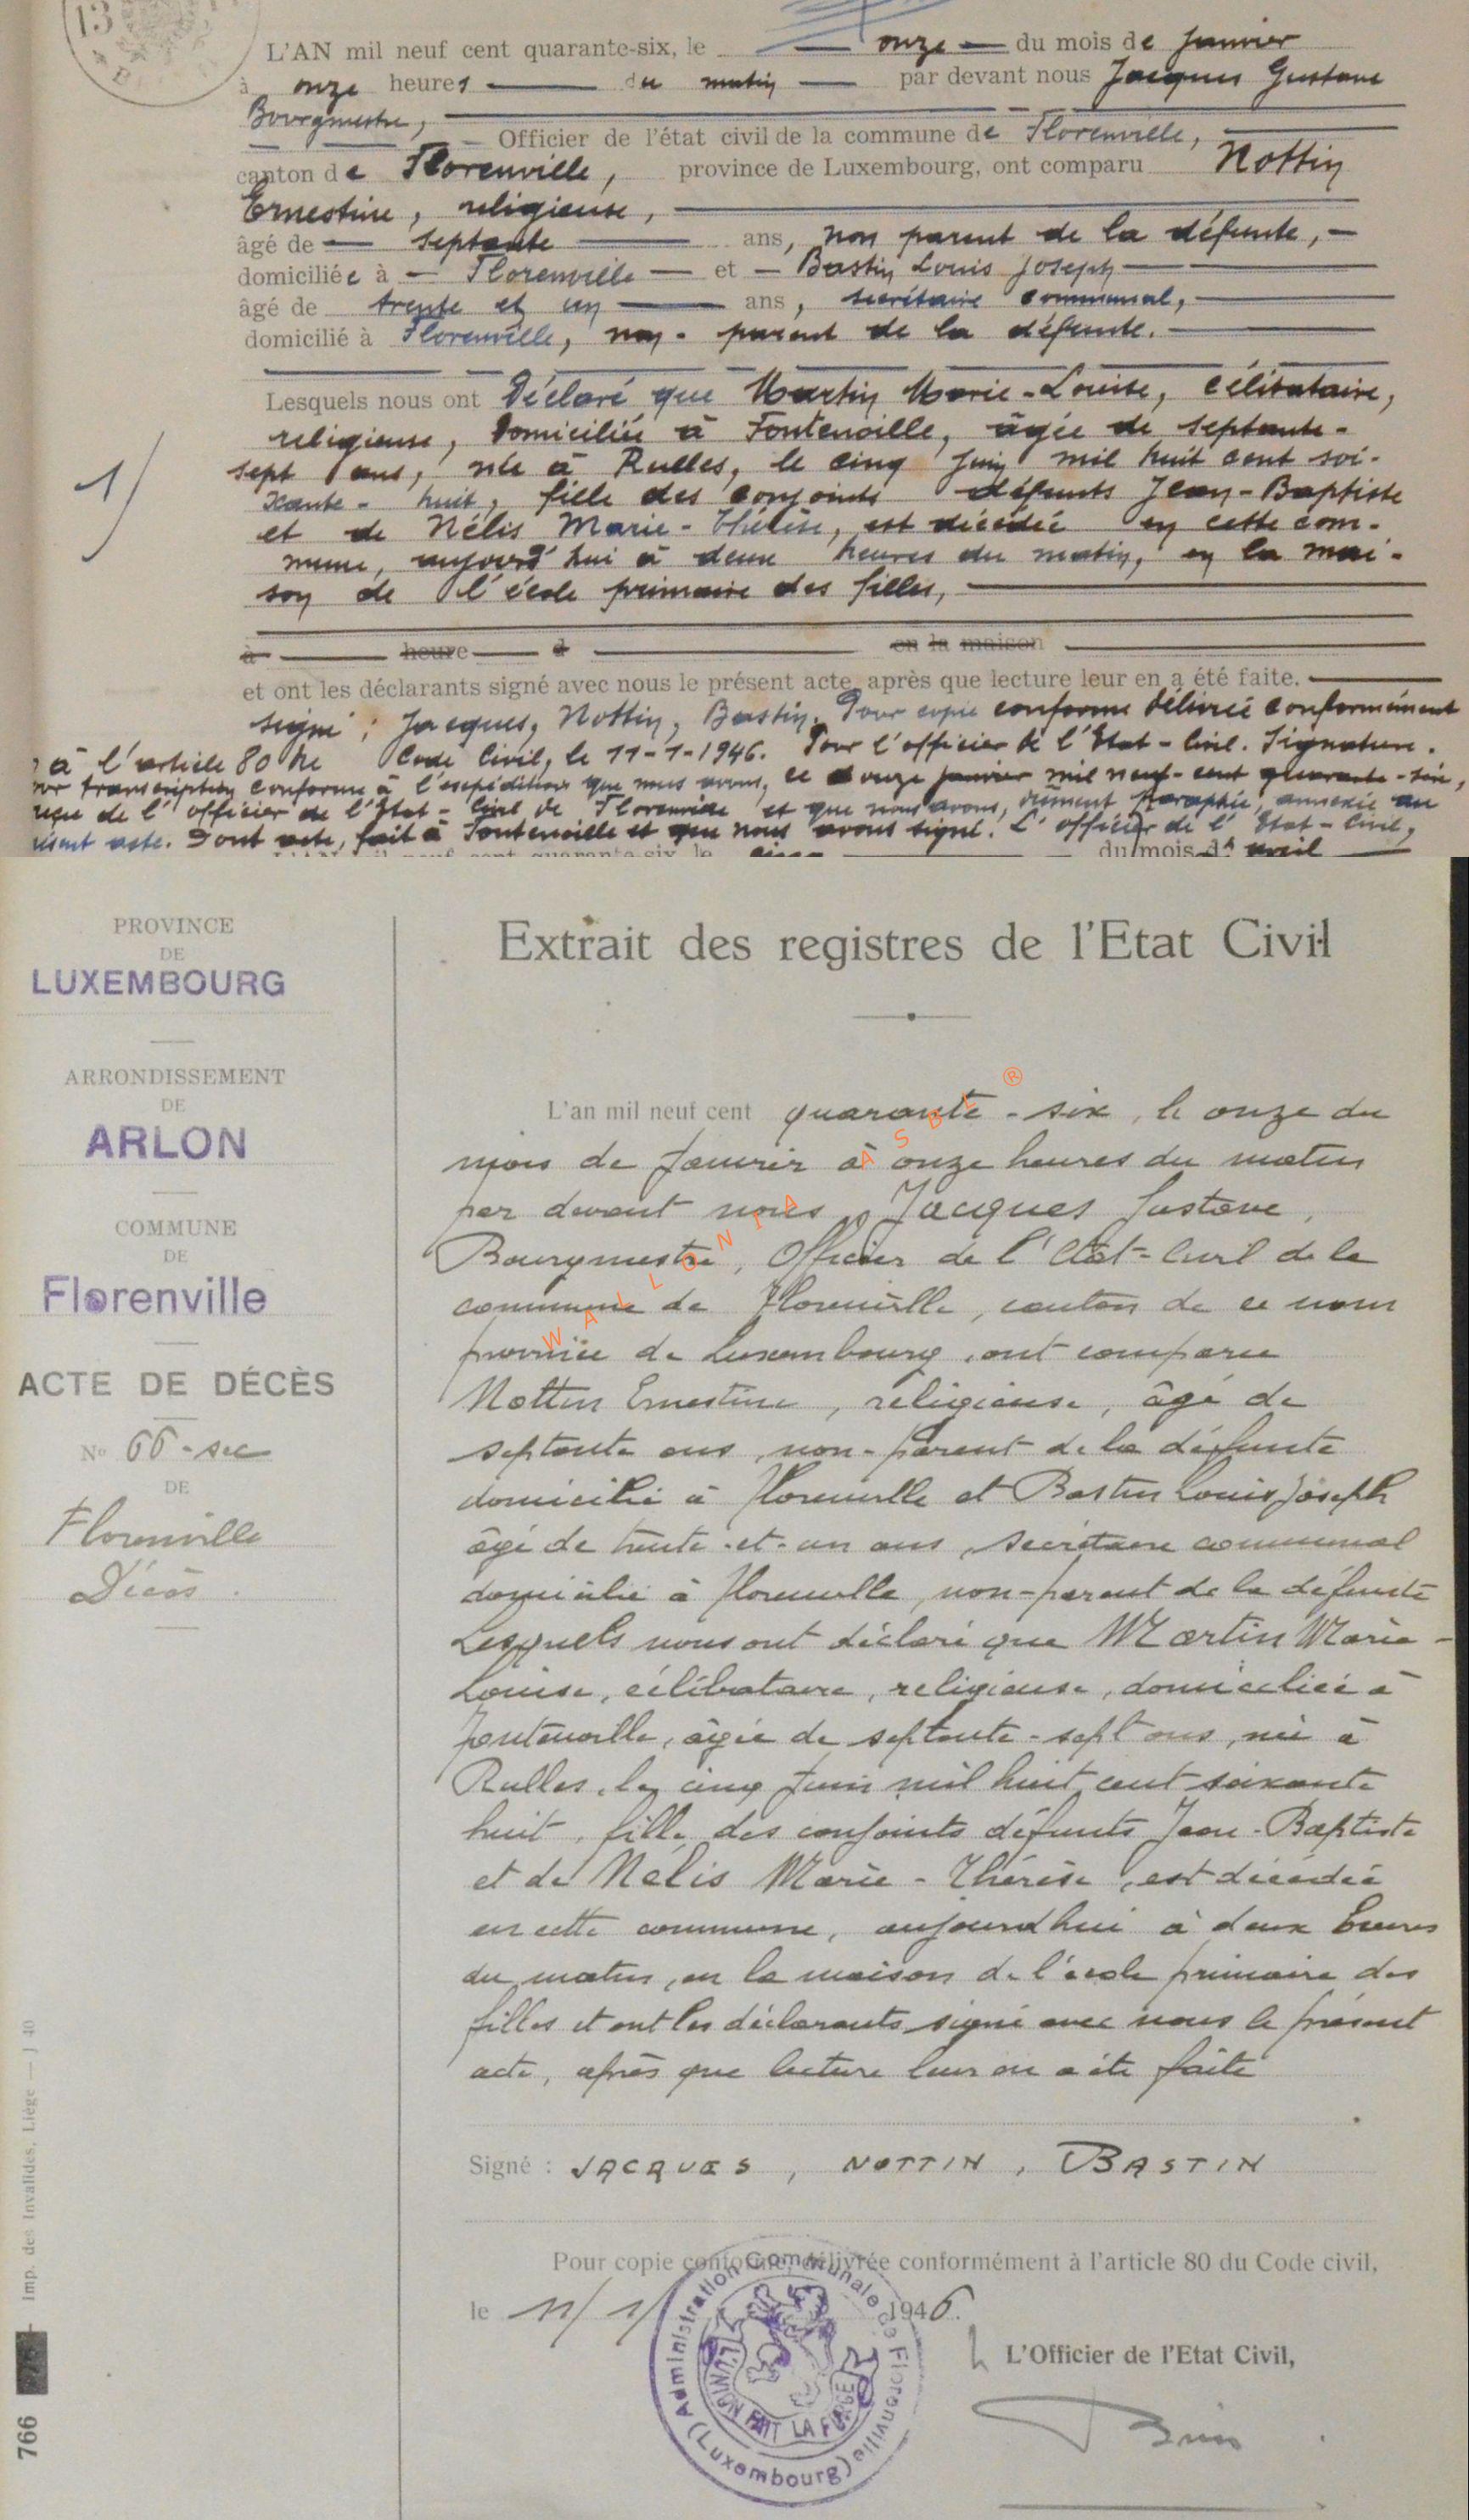 13
L'AN mil neuf cent quarante-six, le onze du mois de janvier
à onze heures du matin par devant nous Jacques Gustave
Bourgmestre,
Officier de l'état civil de la commune de Florenville,
canton de Florenville, province de Luxembourg, ont comparu Nottin
Ernestine, religieuse,
âgé de septante ans, non parent de la défunte,
domiciliée à Florenville et Bastin Louis Joseph
âgé de trente et un ans, secrétaire communal,
domicilié à Florenville, non-parent de la défunte.
Lesquels nous ont Déclaré que Martin Marie-Louise, célibataire,
religieuse, domiciliée à Fontenoille, âgée de septante-
1/
sept ans, née à Rulles, le cinq juin mil huit cent soi-
xante-huit, fille des conjoints défunts Jean-Baptiste
et de Nélis Marie-Thérèse, est décédée en cette com-
mune, aujourd'hui à deux heures du matin, en la mai-
son de l'école primaire des filles,
à heure d en la maison
et ont les déclarants signé avec nous le présent acte, après que lecture leur en a été faite.
signé: Jacques, Nottin, Bastin. Pour copie conforme délivrée conformément
à l'article 80 du Code Civil, le 11-1-1946. Pour l'officier de l'Etat-Civil. Signature.
transcription conforme à l'expédition que nous avons, ce douze janvier mil neuf-cent quarante-six,
reçue de l'officier de l'Etat-Civil de Florenville et que nous avons, dûment paraphée, annexée au
acte. Dont acte, fait à Fontenoille et que nous avons signé. L'officier de l'Etat-Civil,
L'AN mil neuf cent quarante-six le cinq du mois d'avril
PROVINCE
DE
LUXEMBOURG
ARRONDISSEMENT
DE
ARLON
COMMUNE
DE
Florenville
ACTE DE DÉCÈS
N° 66-sec
DE
Florenville
Décès.
766
Imp. des Invalides, Liège — J 40
Extrait des registres de l'Etat Civil
L'an mil neuf cent quarante-six, le onze du
mois de Janvier à onze heures du matin
par devant nous, Jacques Gustave,
Bourgmestre, Officier de l'Etat-Civil de la
commune de Florenville, canton de ce nom
province de Luxembourg, ont comparu
Nottin Ernestine, religieuse, âgé de
septante ans, non-parent de la défunte
domicilié à Florenville et Bastin Louis Joseph
âgé de trente-et-un ans, secrétaire communal
domicilié à Florenville, non-parent de la défunte
Lesquels nous ont déclaré que Martin Marie-
Louise, célibataire, religieuse, domiciliée à
Fontenoille, âgée de septante-sept ans, née à
Rulles, le cinq Juin mil huit cent soixante
huit, fille des conjoints défunts Jean-Baptiste
et de Nélis Marie-Thérèse, est décédée
en cette commune, aujourd'hui à deux heures
du matin, en la maison de l'école primaire des
filles et ont les déclarants signé avec nous le présent
acte, après que lecture leur en a été faite
WALLONIA ASBL ®
Signé : JACQUES, NOTTIN, BASTIN
Pour copie conforme, délivrée conformément à l'article 80 du Code civil,
le 11/1/ 1946.
L'Officier de l'Etat Civil,
Administration Communale de Florenville (Luxembourg)
L'UNION FAIT LA FORCE